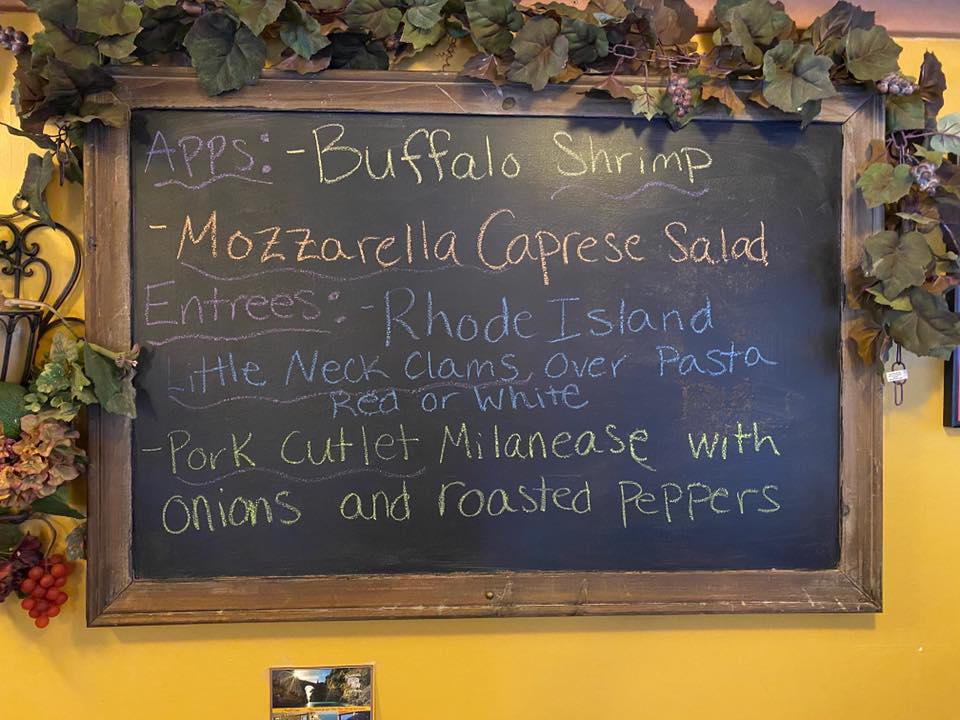 Apps: - Buffalo Shrimp
- Mozzarella Caprese Salad
Entrees: - Rhode Island
Little Neck Clams over Pasta
Red or White
- Pork Cutlet Milanease with
onions and roasted peppers